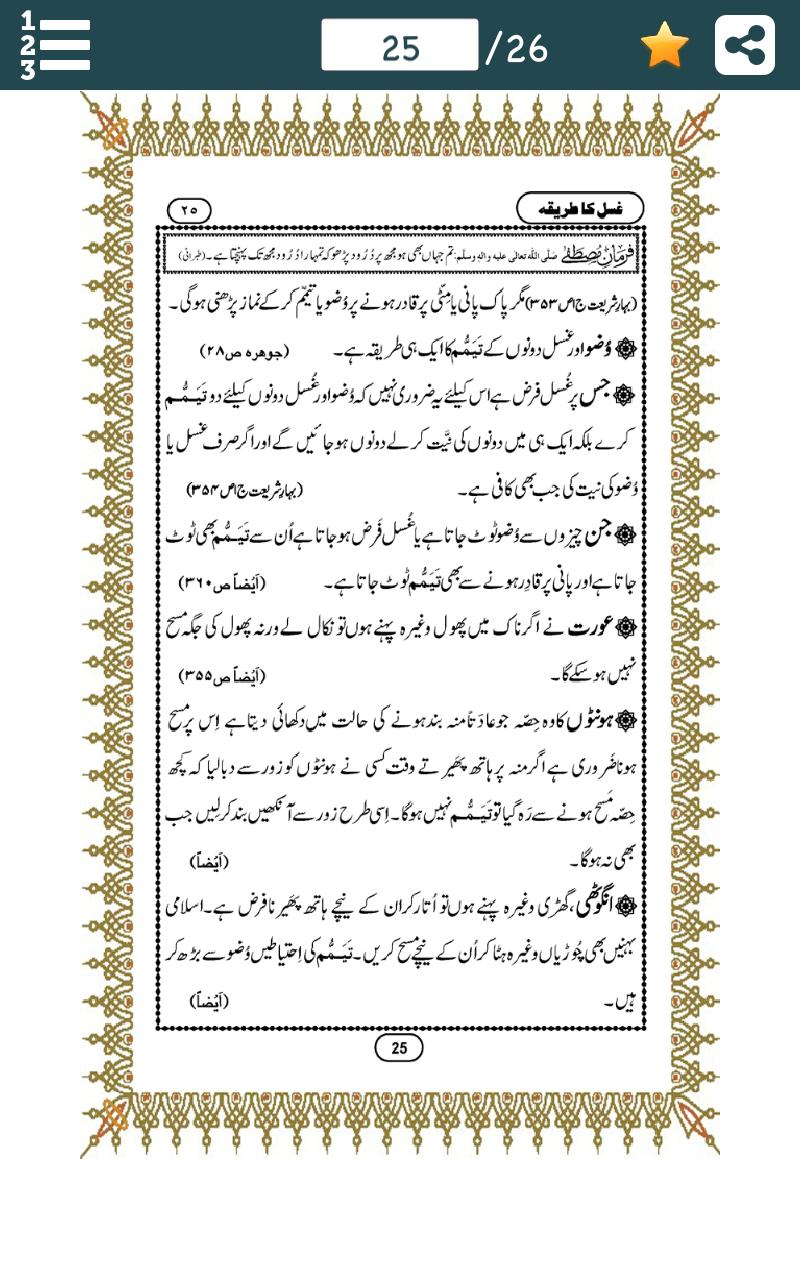 1
2
3
25 /26
غسل کا طریقہ
۲۵
فرمانِ مصطفٰے صلَّی اللہ تعالٰی علیہ واٰلہٖ وسلَّم: تم جہاں بھی ہو مجھ پر دُرُود پڑھو کہ تمہارا دُرُود مجھ تک پہنچتا ہے۔ (طبرانی)
(بہارِشریعت ج۱ص۳۵۳) مگر پاک پانی یا مِٹّی پر قادر ہونے پر وُضو یا تیمّم کر کے نماز پڑھنی ہوگی۔
وُضو اور غسل دونوں کے تَیَمُّم کا ایک ہی طریقہ ہے۔ (جوہرہ ص۲۸)
جس پر غُسل فرض ہے اس کیلئے یہ ضروری نہیں کہ وُضو اور غُسل دونوں کیلئے دو تَیَمُّم
کرے بلکہ ایک ہی میں دونوں کی نیَّت کر لے دونوں ہو جائیں گے اور اگر صرف غسل یا
وُضو کی نیت کی جب بھی کافی ہے۔ (بہارِشریعت ج۱ص۳۵۴)
جن چیزوں سے وُضو ٹوٹ جاتا ہے یا غُسل فَرض ہو جاتا ہے اُن سے تَیَمُّم بھی ٹوٹ
جاتا ہے اور پانی پر قادِر ہونے سے بھی تَیَمُّم ٹوٹ جاتا ہے۔ (اَیْضاً ص۳۶۰)
عورت نے اگر ناک میں پھول وغیرہ پہنے ہوں تو نکال لے ورنہ پھول کی جگہ مسح
نہیں ہو سکے گا۔ (اَیْضاً ص۳۵۵)
ہونٹوں کا وہ حِصّہ جو عادَتاً منہ بند ہونے کی حالت میں دکھائی دیتا ہے اِس پر مسح
ہونا ضَروری ہے اگر منہ پر ہاتھ پھیرتے وقت کسی نے ہونٹوں کو زور سے دبا لیا کہ کچھ
حِصّہ مَسح ہونے سے رَہ گیا تو تَیَمُّم نہیں ہوگا۔ اِسی طرح زور سے آنکھیں بند کر لیں جب
بھی نہ ہوگا۔ (اَیْضاً)
انگوٹھی، گھڑی وغیرہ پہنے ہوں تو اُتار کر ان کے نیچے ہاتھ پھیرنا فرض ہے۔ اسلامی
بہنیں بھی چُوڑیاں وغیرہ ہٹا کر اُن کے نیچے مسح کریں۔ تَیَمُّم کی اِحتیاطیں وُضو سے بڑھ کر
ہیں۔ (اَیْضاً)
25